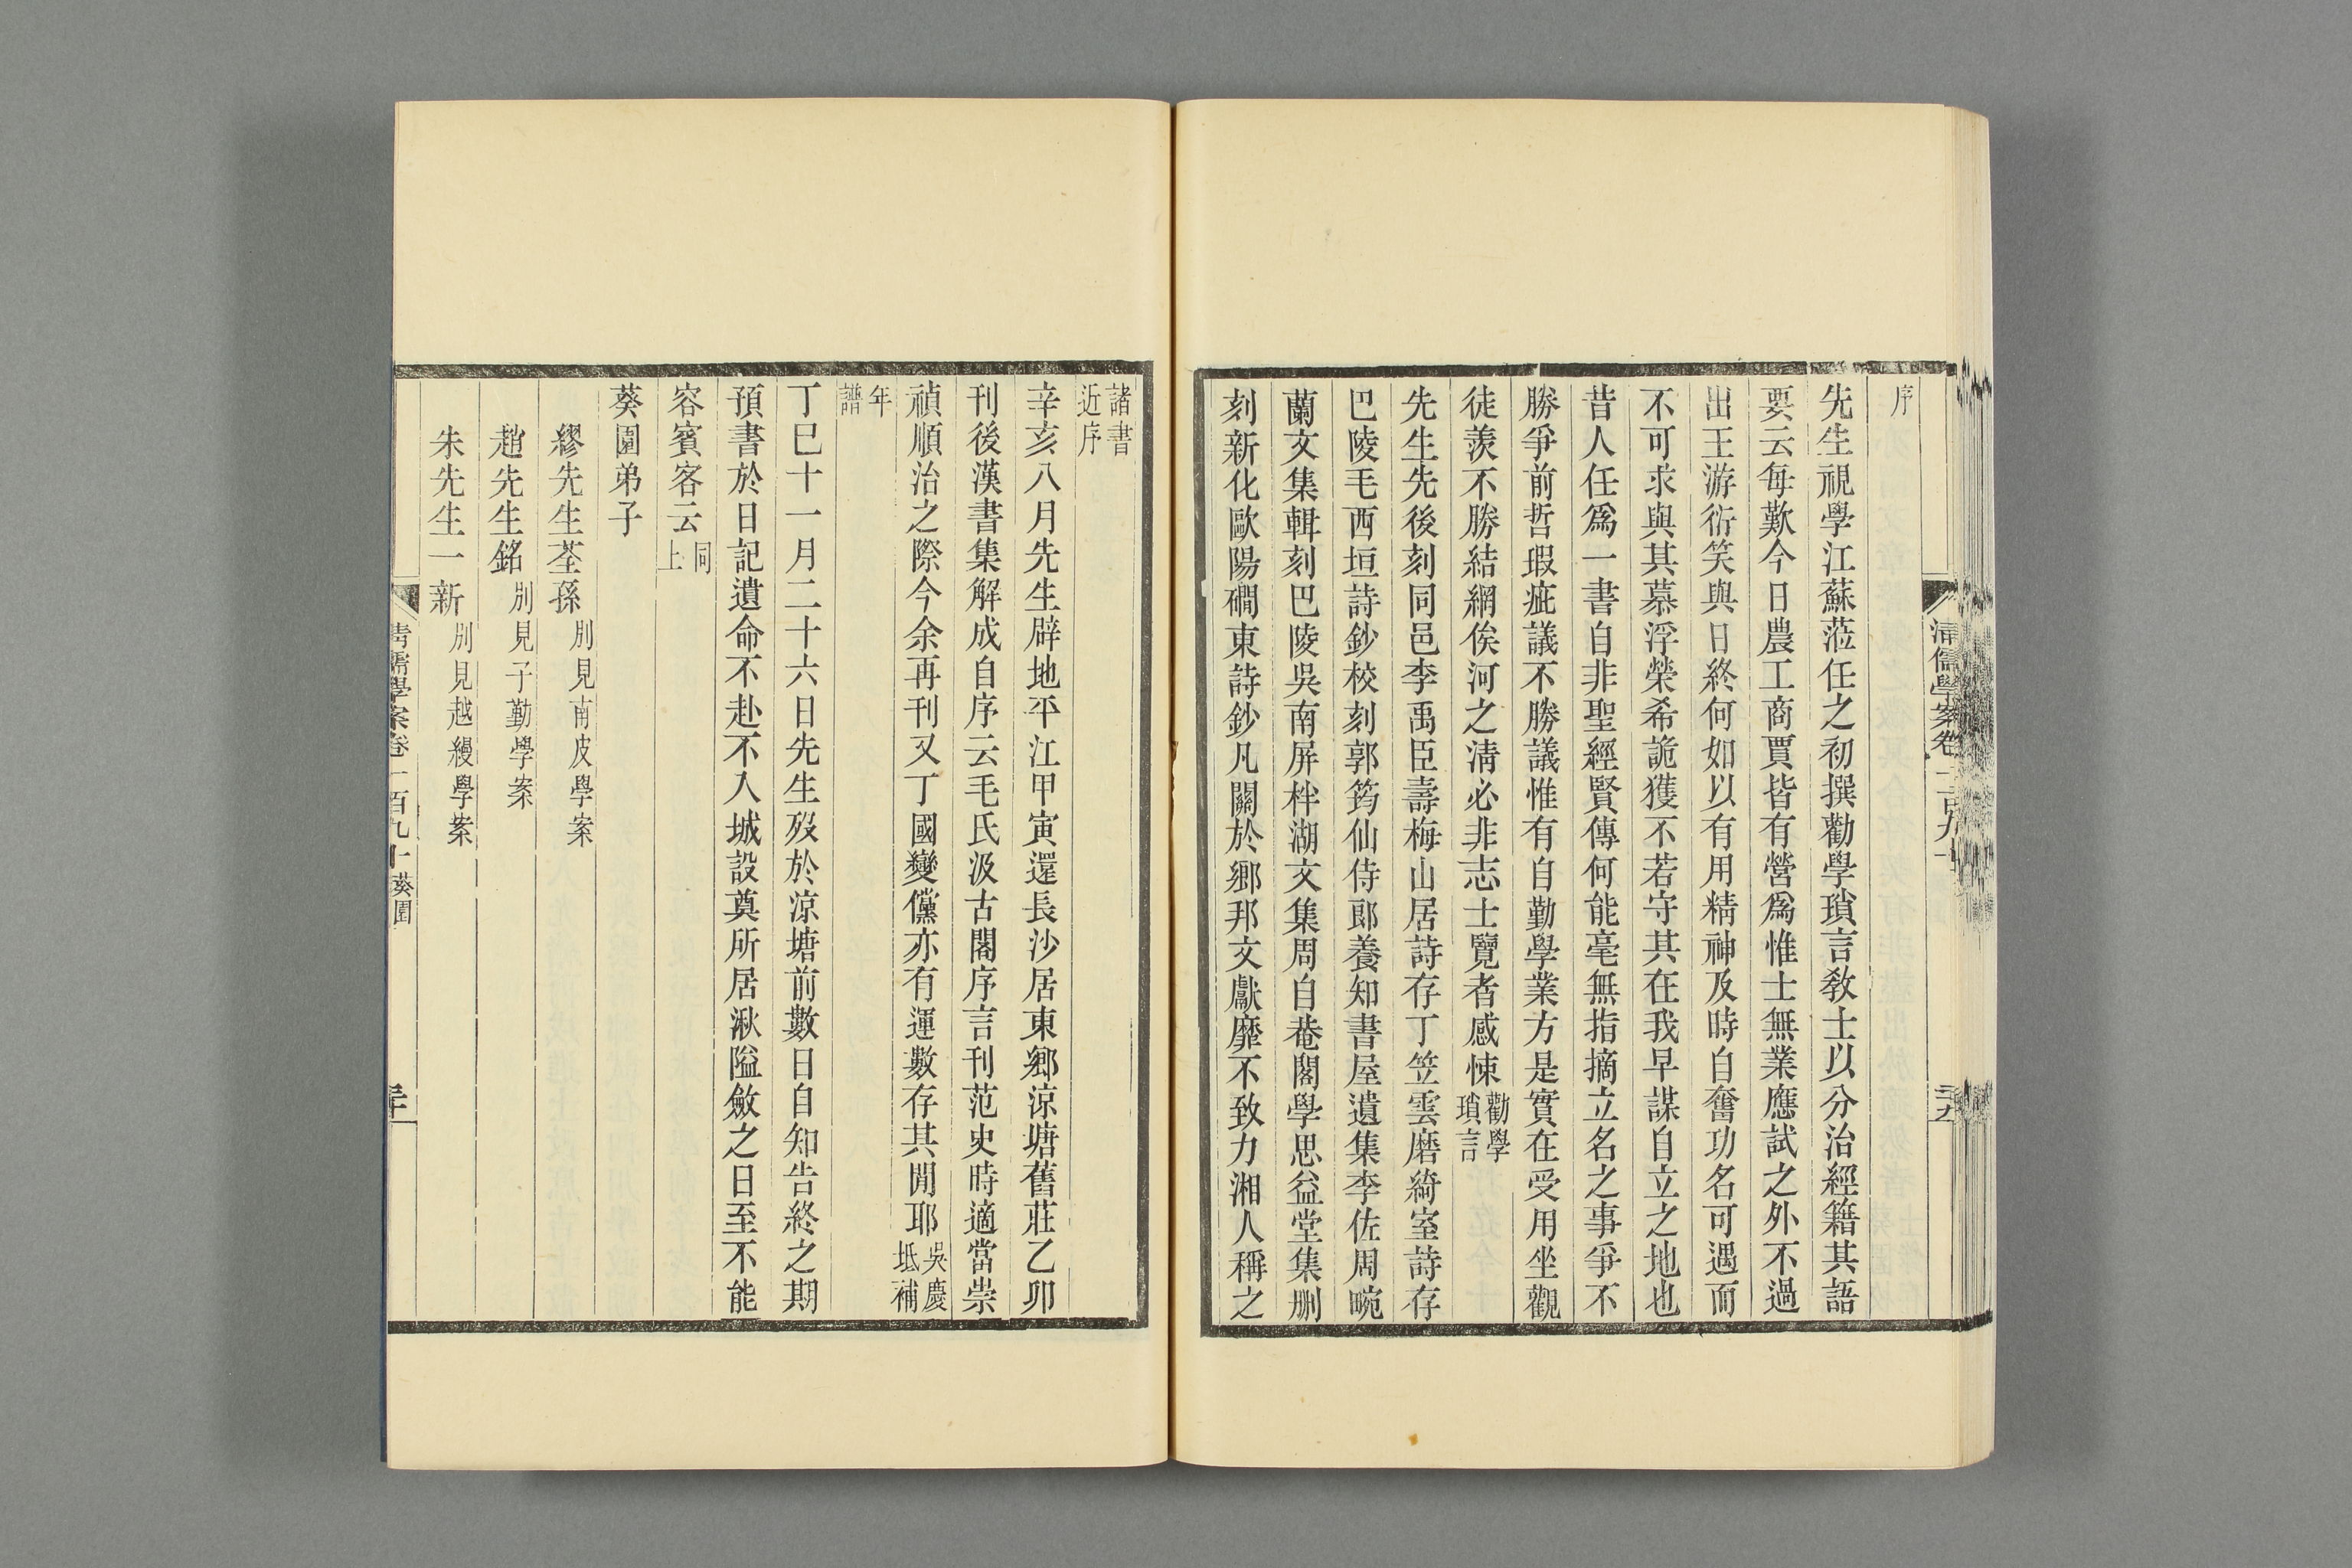 序
先生視學江蘇蒞任之初撰勸學瑣言敎士以分治經籍其語
要云每歎今日農工商賈皆有營爲惟士無業應試之外不過
出王游衍笑與日終何如以有用精神及時自奮功名可遇而
不可求與其慕浮榮希詭獲不若守其在我早謀自立之地也
昔人任爲一書自非聖經賢傳何能毫無指摘立名之事爭不
勝爭前哲瑕疵議不勝議惟有自勤學業方是實在受用坐觀
徒羨不勝結網俟河之淸必非志士覽者感悚勸學瑣言
先生先後刻同邑李禹臣壽梅山居詩存丁笠雲磨綺室詩存
巴陵毛西垣詩鈔校刻郭筠仙侍郎養知書屋遺集李佐周畹
蘭文集輯刻巴陵吳南屏柈湖文集周自菴閣學思益堂集刪
刻新化歐陽磵東詩鈔凡關於鄉邦文獻靡不致力湘人稱之
諸書近序
辛亥八月先生辟地平江甲寅還長沙居東鄉涼塘舊莊乙卯
刊後漢書集解成自序云毛氏汲古閣序言刊范史時適當崇
禎順治之際今余再刊又丁國變儻亦有運數存其閒耶吳慶坻補
年譜
丁巳十一月二十六日先生歿於涼塘前數日自知告終之期
預書於日記遺命不赴不入城設奠所居湫隘斂之日至不能
容賓客云同上
葵園弟子
繆先生荃孫別見南皮學案
趙先生銘別見子勤學案
朱先生一新別見越縵學案
淸儒學案卷一百九十葵園